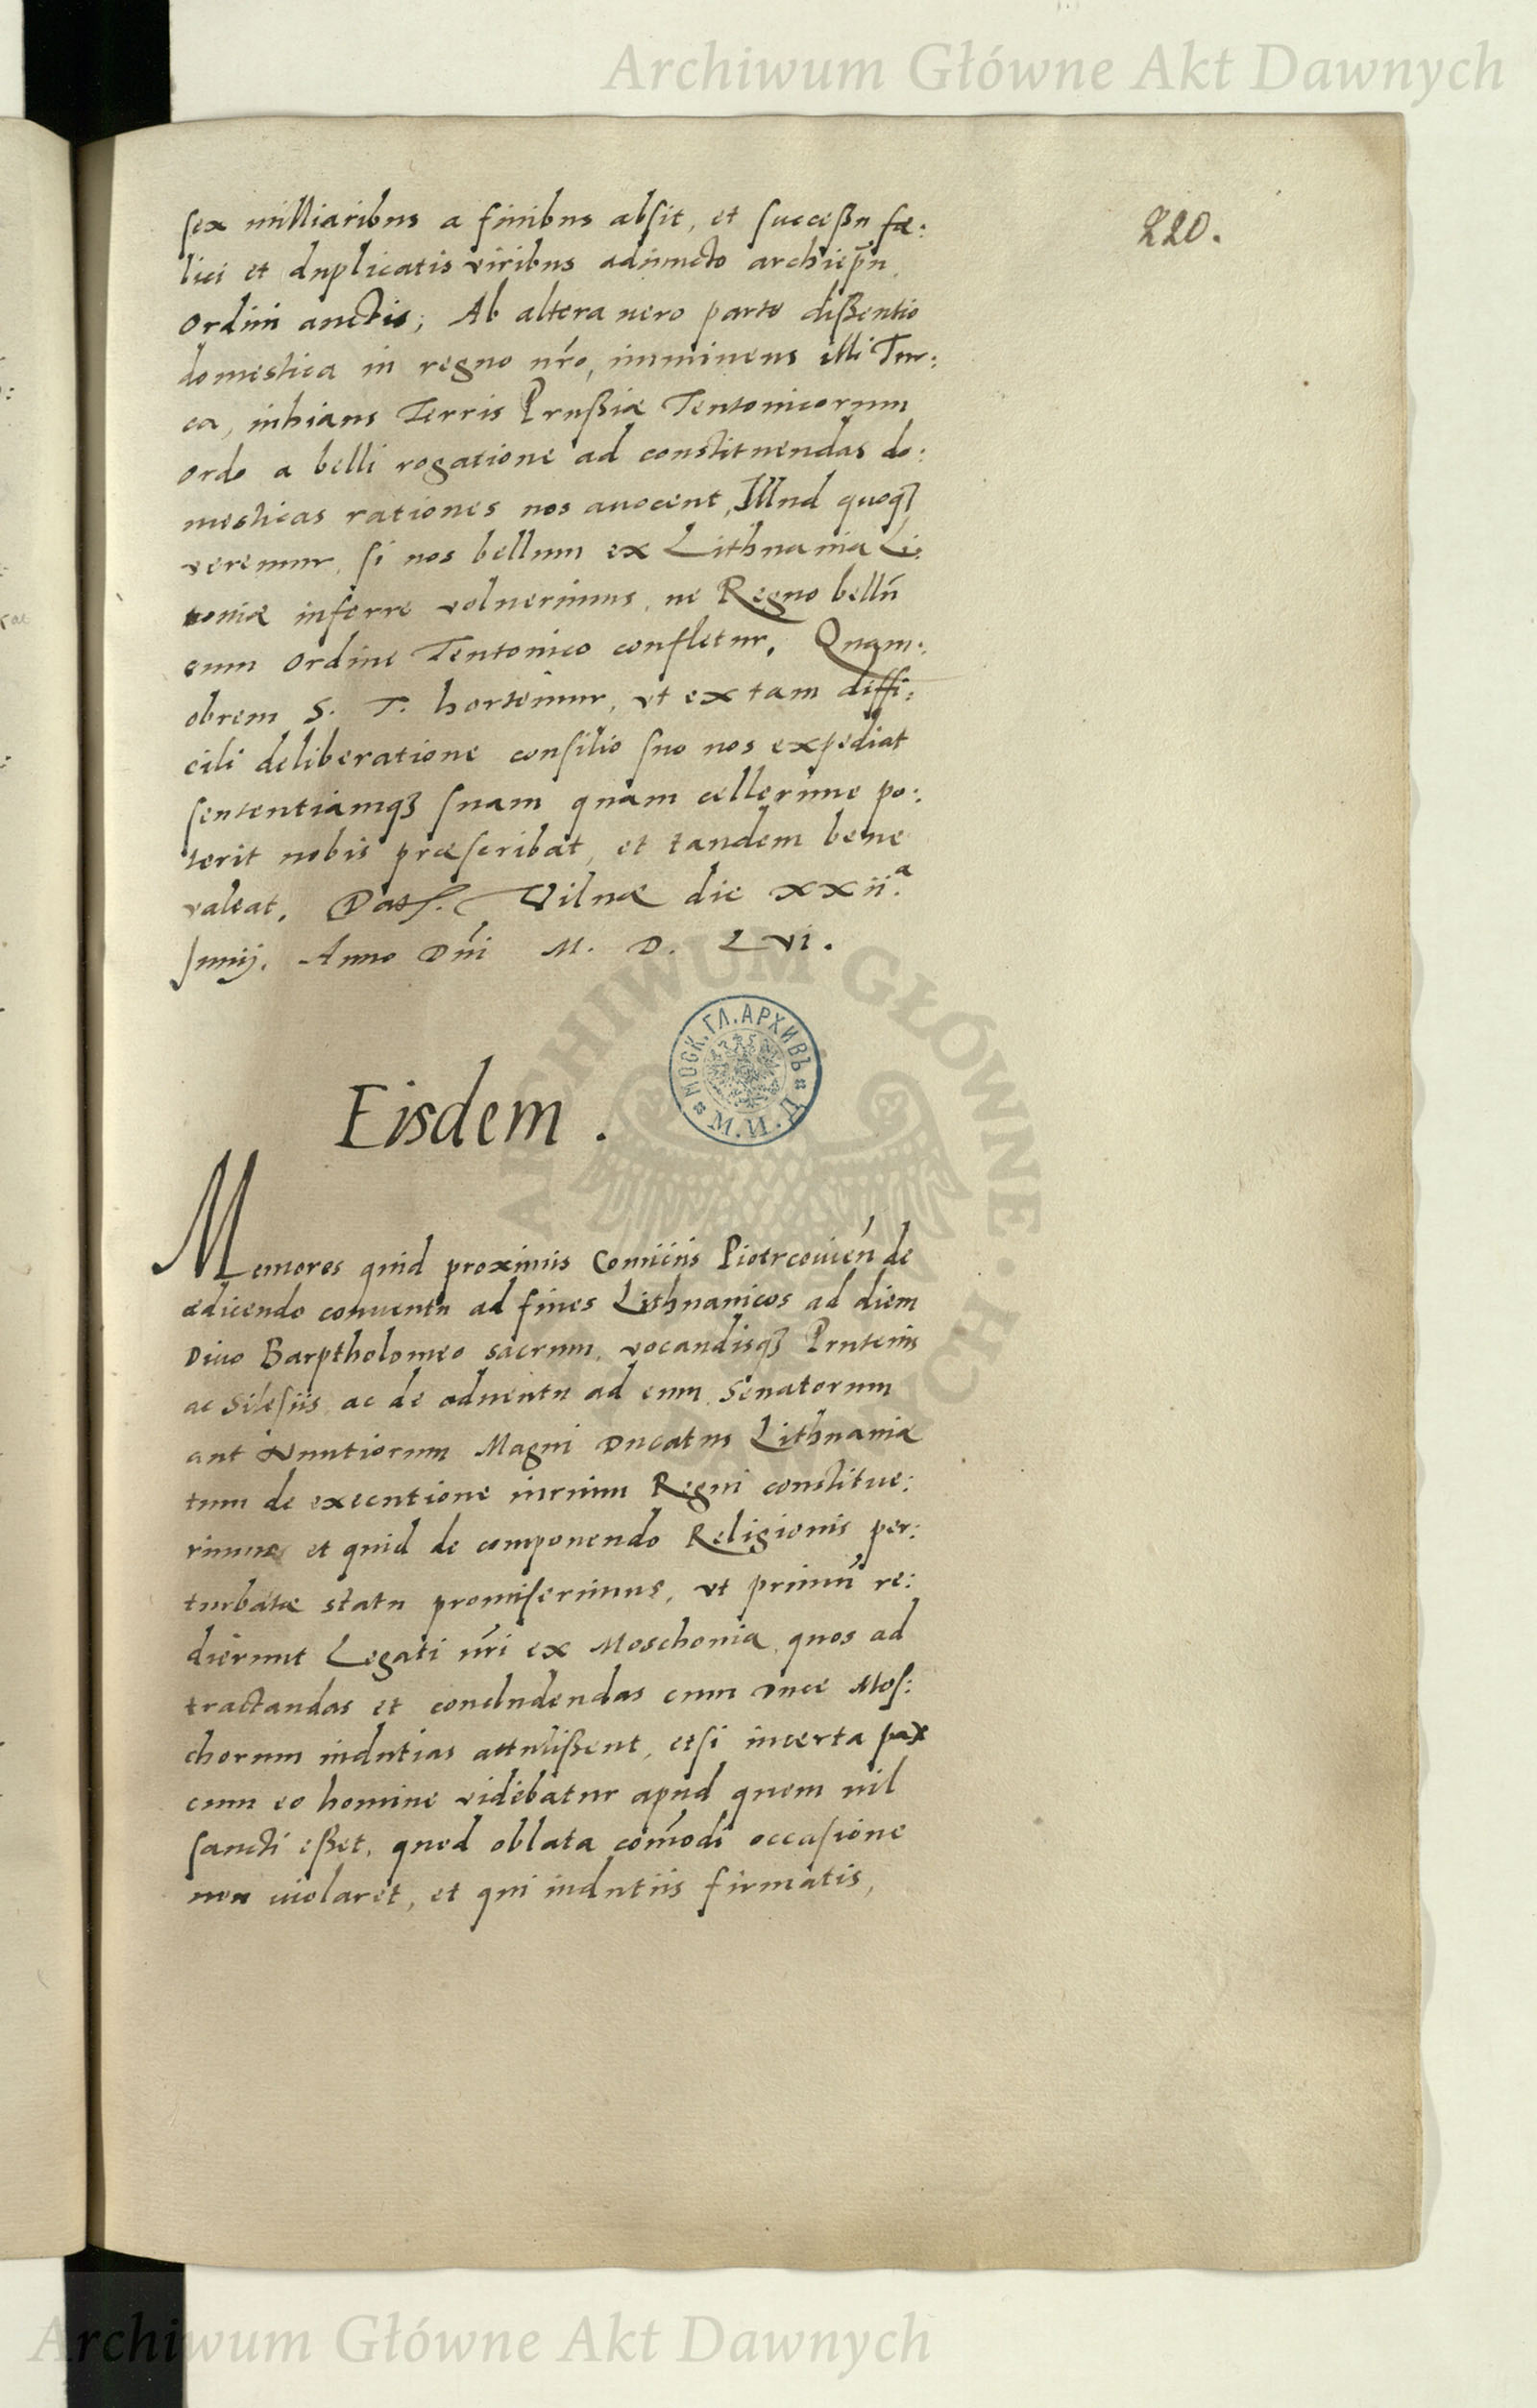 Archiwum Główne Akt Dawnych
220.
sex milliaribus a finibus absit, et successu fæ:
lici et duplicatis viribus adiuncto archiep̃u
Ordini auctis; Ab altera uero parte dissentio
domestica in regno nr̃o, imminens illi Tur:
ca, inhians Terris Prussiæ Teutonicorum
ordo a belli rogatione ad constituendas do:
mesticas rationes nos auocent, Illud quoqȝ
veremur, si nos bellum ex Lithuania Li:
uoniæ inferre voluerimus, ne Regno bellũ
cum Ordine Teutonico confletur. Quam:
obrem S. T. hortemur, vt ex tam diffi:
cili deliberatione consilio suo nos expediat
sententiamqȝ suam quam cellerime po:
terit nobis præscribat, et tandem bene
valeat. Dat. Vilnæ die xxii.ª
Junij. Anno Dñi M. D. Lvi.
Eisdem.
МОСК. ГЛ. АРХИВЪ М. И. Д.
ARCHIWUM GŁÓWNE AKT DAWNYCH
Memores quid proximis Comiciis Piotrcouień de
ædicendo conuentu ad fines Lithuanicos ad diem
Diuo Barptholomeo sacrum, vocandisqȝ Prutenis
ac Silesiis ac de aduentu ad eum Senatorum
aut Nuntiorum Magni Ducatus Lithuaniæ
tum de executione iurium Regni constitue:
rimus et quid de componendo Religionis per:
turbatæ statu promiserimus, vt primũ re:
dierunt Legati nr̃i ex Moschouia quos ad
tractandas et concludendas cum Duce Mos:
chorum indutias attulissent, etsi incerta pax
cum eo homine videbatur apud quem nil
sancti esset, quod oblata com̃odi occasione
non uiolaret, et qui indutiis firmatis,
Archiwum Główne Akt Dawnych